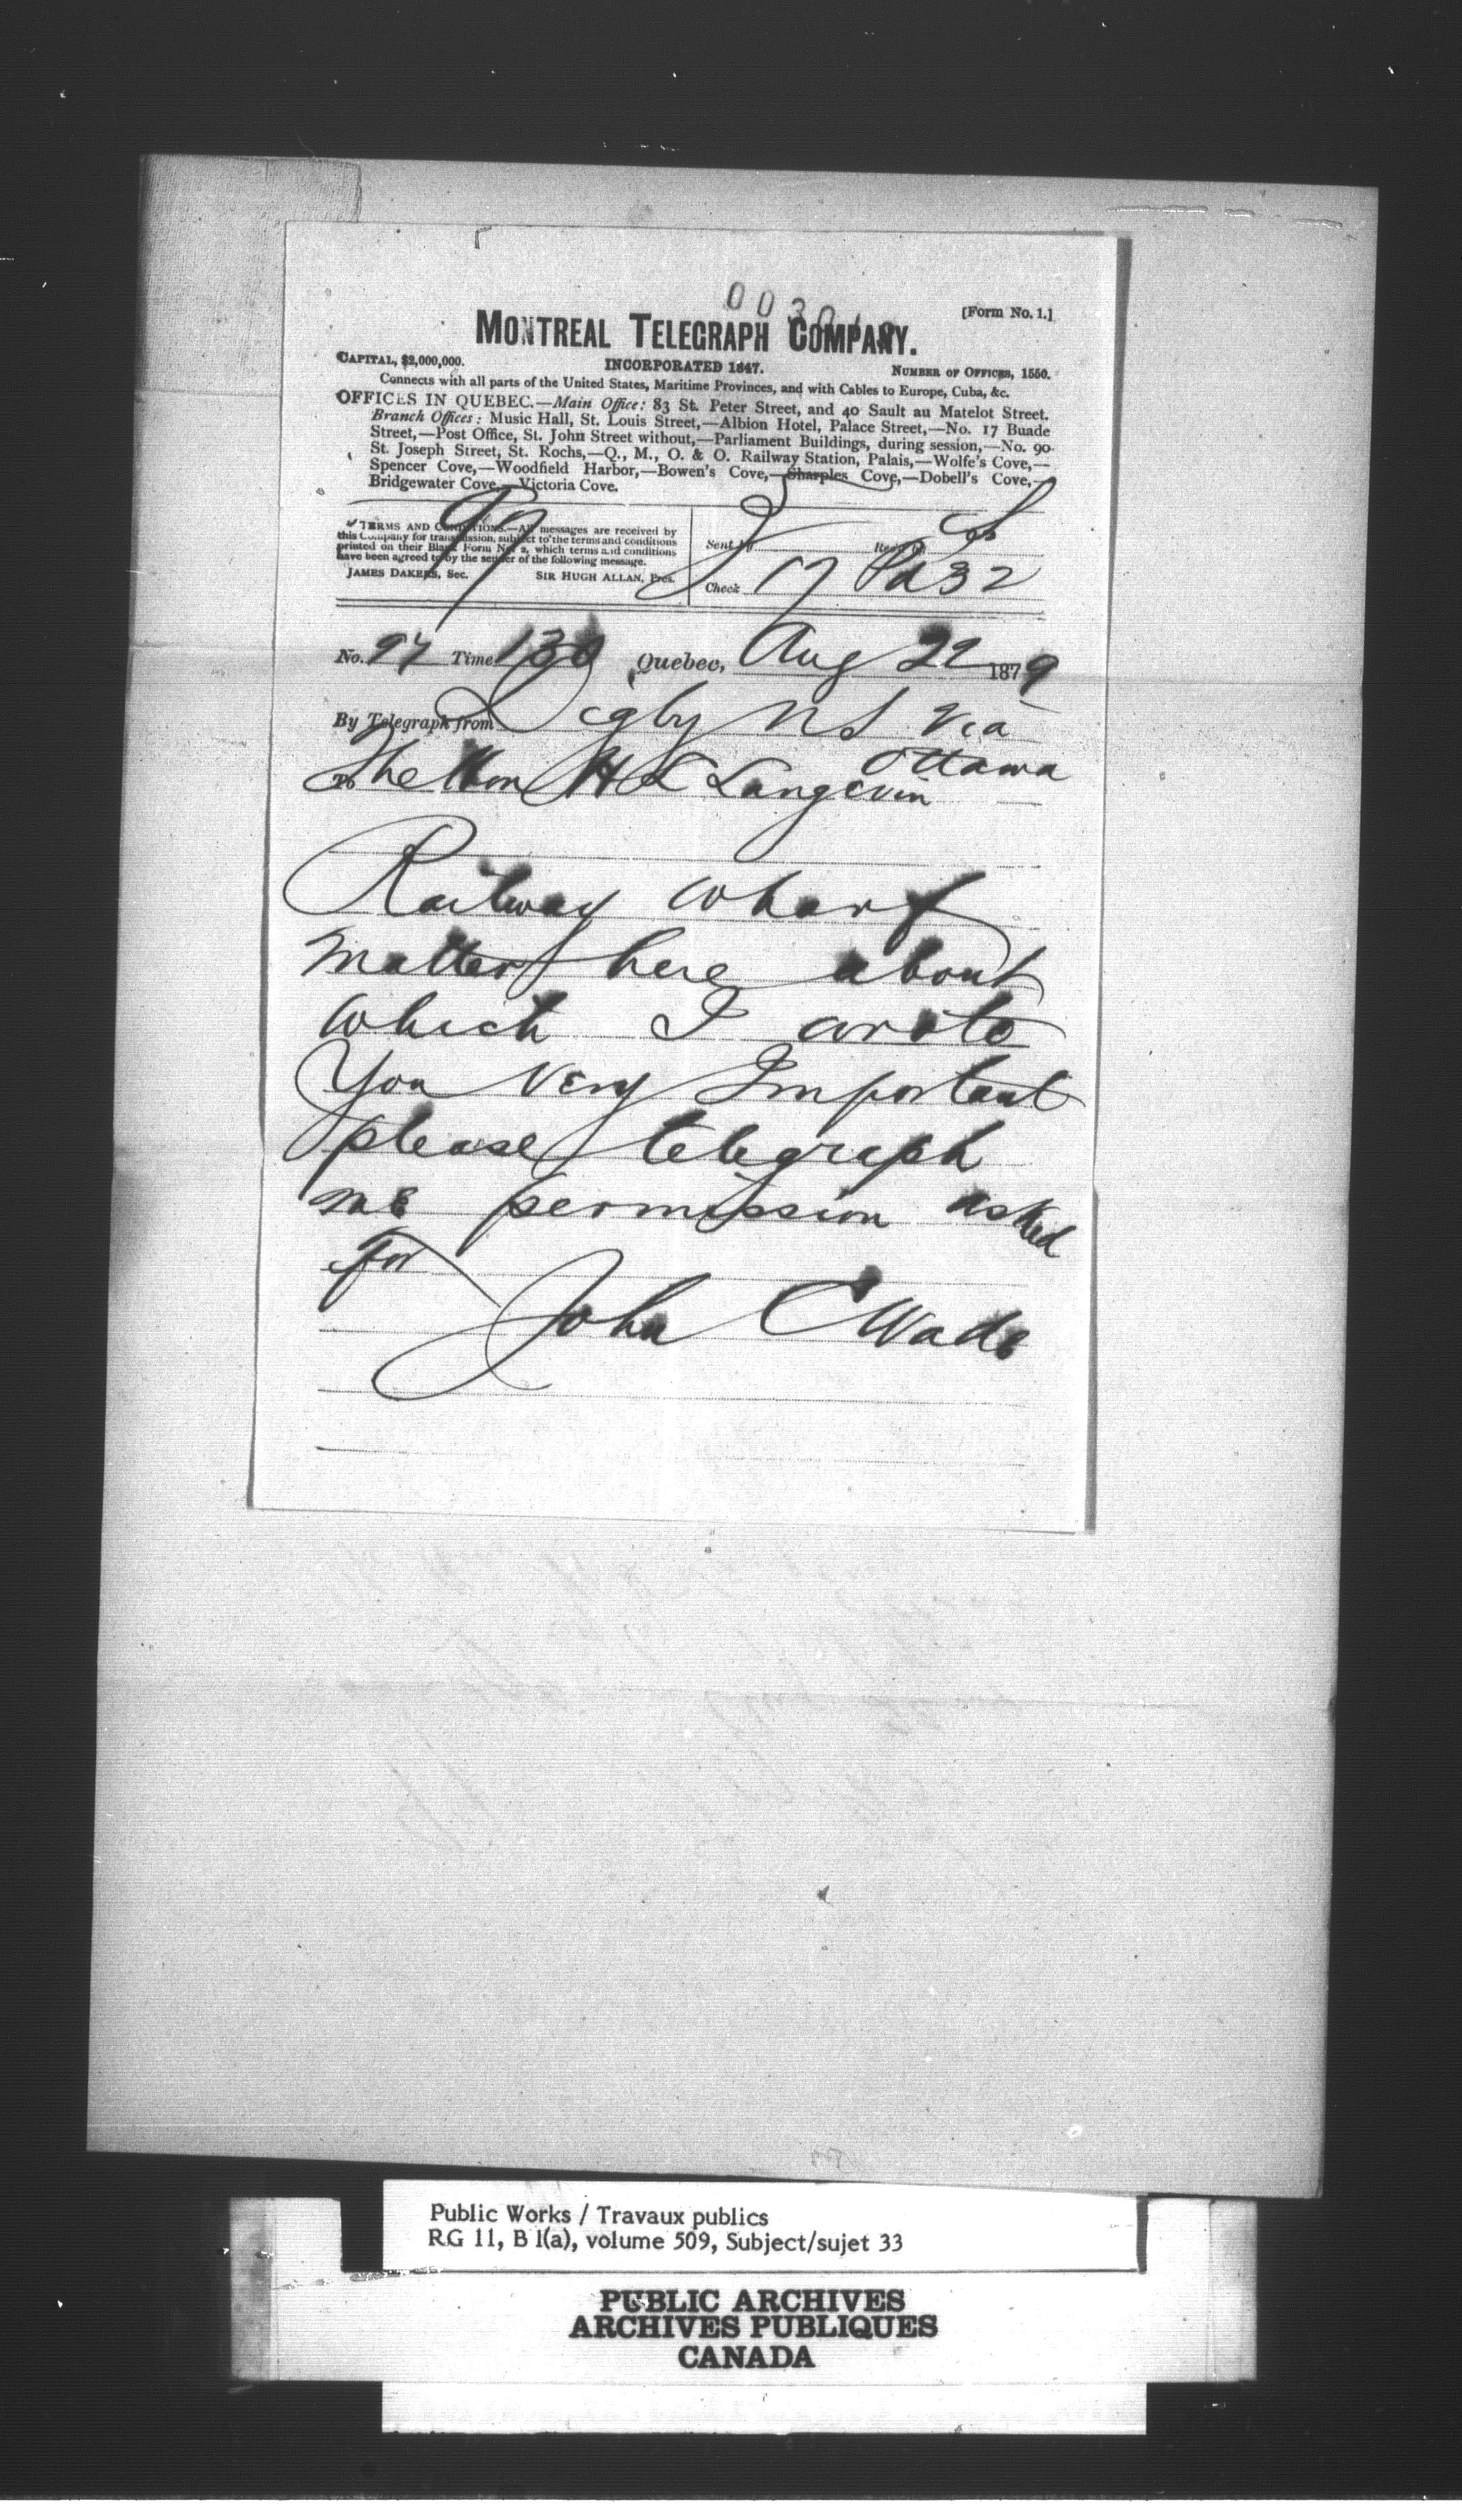 [Form No. 1.]
MONTREAL TELEGRAPH COMPANY.
CAPITAL, $2,000,000. INCORPORATED 1847. NUMBER OF OFFICES, 1550.
Connects with all parts of the United States, Maritime Provinces, and with Cables to Europe, Cuba, &c.
OFFICES IN QUEBEC.—Main Office: 83 St. Peter Street, and 40 Sault au Matelot Street.
Branch Offices: Music Hall, St. Louis Street,—Albion Hotel, Palace Street,—No. 17 Buade
Street,—Post Office, St. John Street without,—Parliament Buildings, during session,—No. 90
St. Joseph Street, St. Rochs,—Q., M., O. & O. Railway Station, Palais,—Wolfe's Cove,—
Spencer Cove,—Woodfield Harbor,—Bowen's Cove,—Sharples Cove,—Dobell's Cove,—
Bridgewater Cove,—Victoria Cove.
TERMS AND CONDITIONS.—All messages are received by
this Company for transmission, subject to the terms and conditions
printed on their Blank Form No. 2, which terms and conditions
have been agreed to by the sender of the following message.
JAMES DAKERS, Sec. SIR HUGH ALLAN, Pres.
99
Sent by Rec'd by
Check 17 Pd 32
No. 97 Time 130 Quebec, Aug 22 1879
By Telegraph from Digby NS via
Ottawa
To The Hon H L Langevin
Railway wharf
matter here about
which I wrote
you very Important
please telegraph
me permission asked
for
John C Wade
Public Works / Travaux publics
RG 11, B 1(a), volume 509, Subject/sujet 33
PUBLIC ARCHIVES
ARCHIVES PUBLIQUES
CANADA